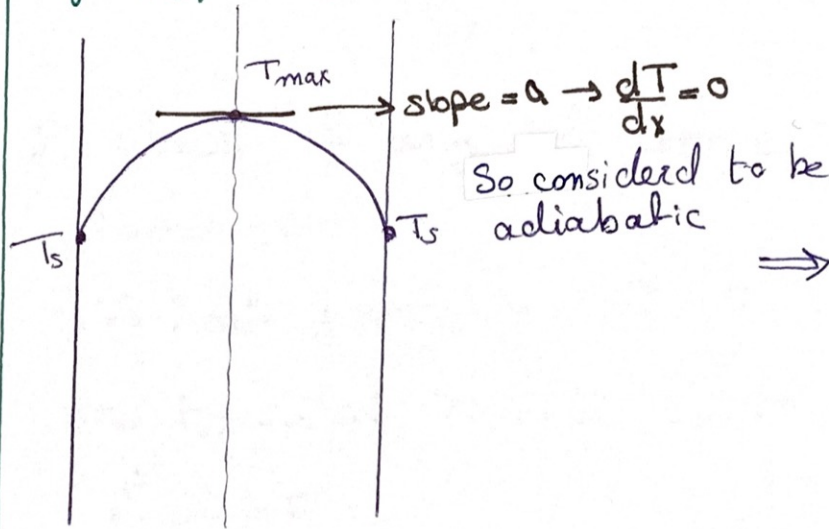 Tmax
slope = 0 → dT/dx = 0
So considerd to be
adiabatic
Ts
Ts
⇒